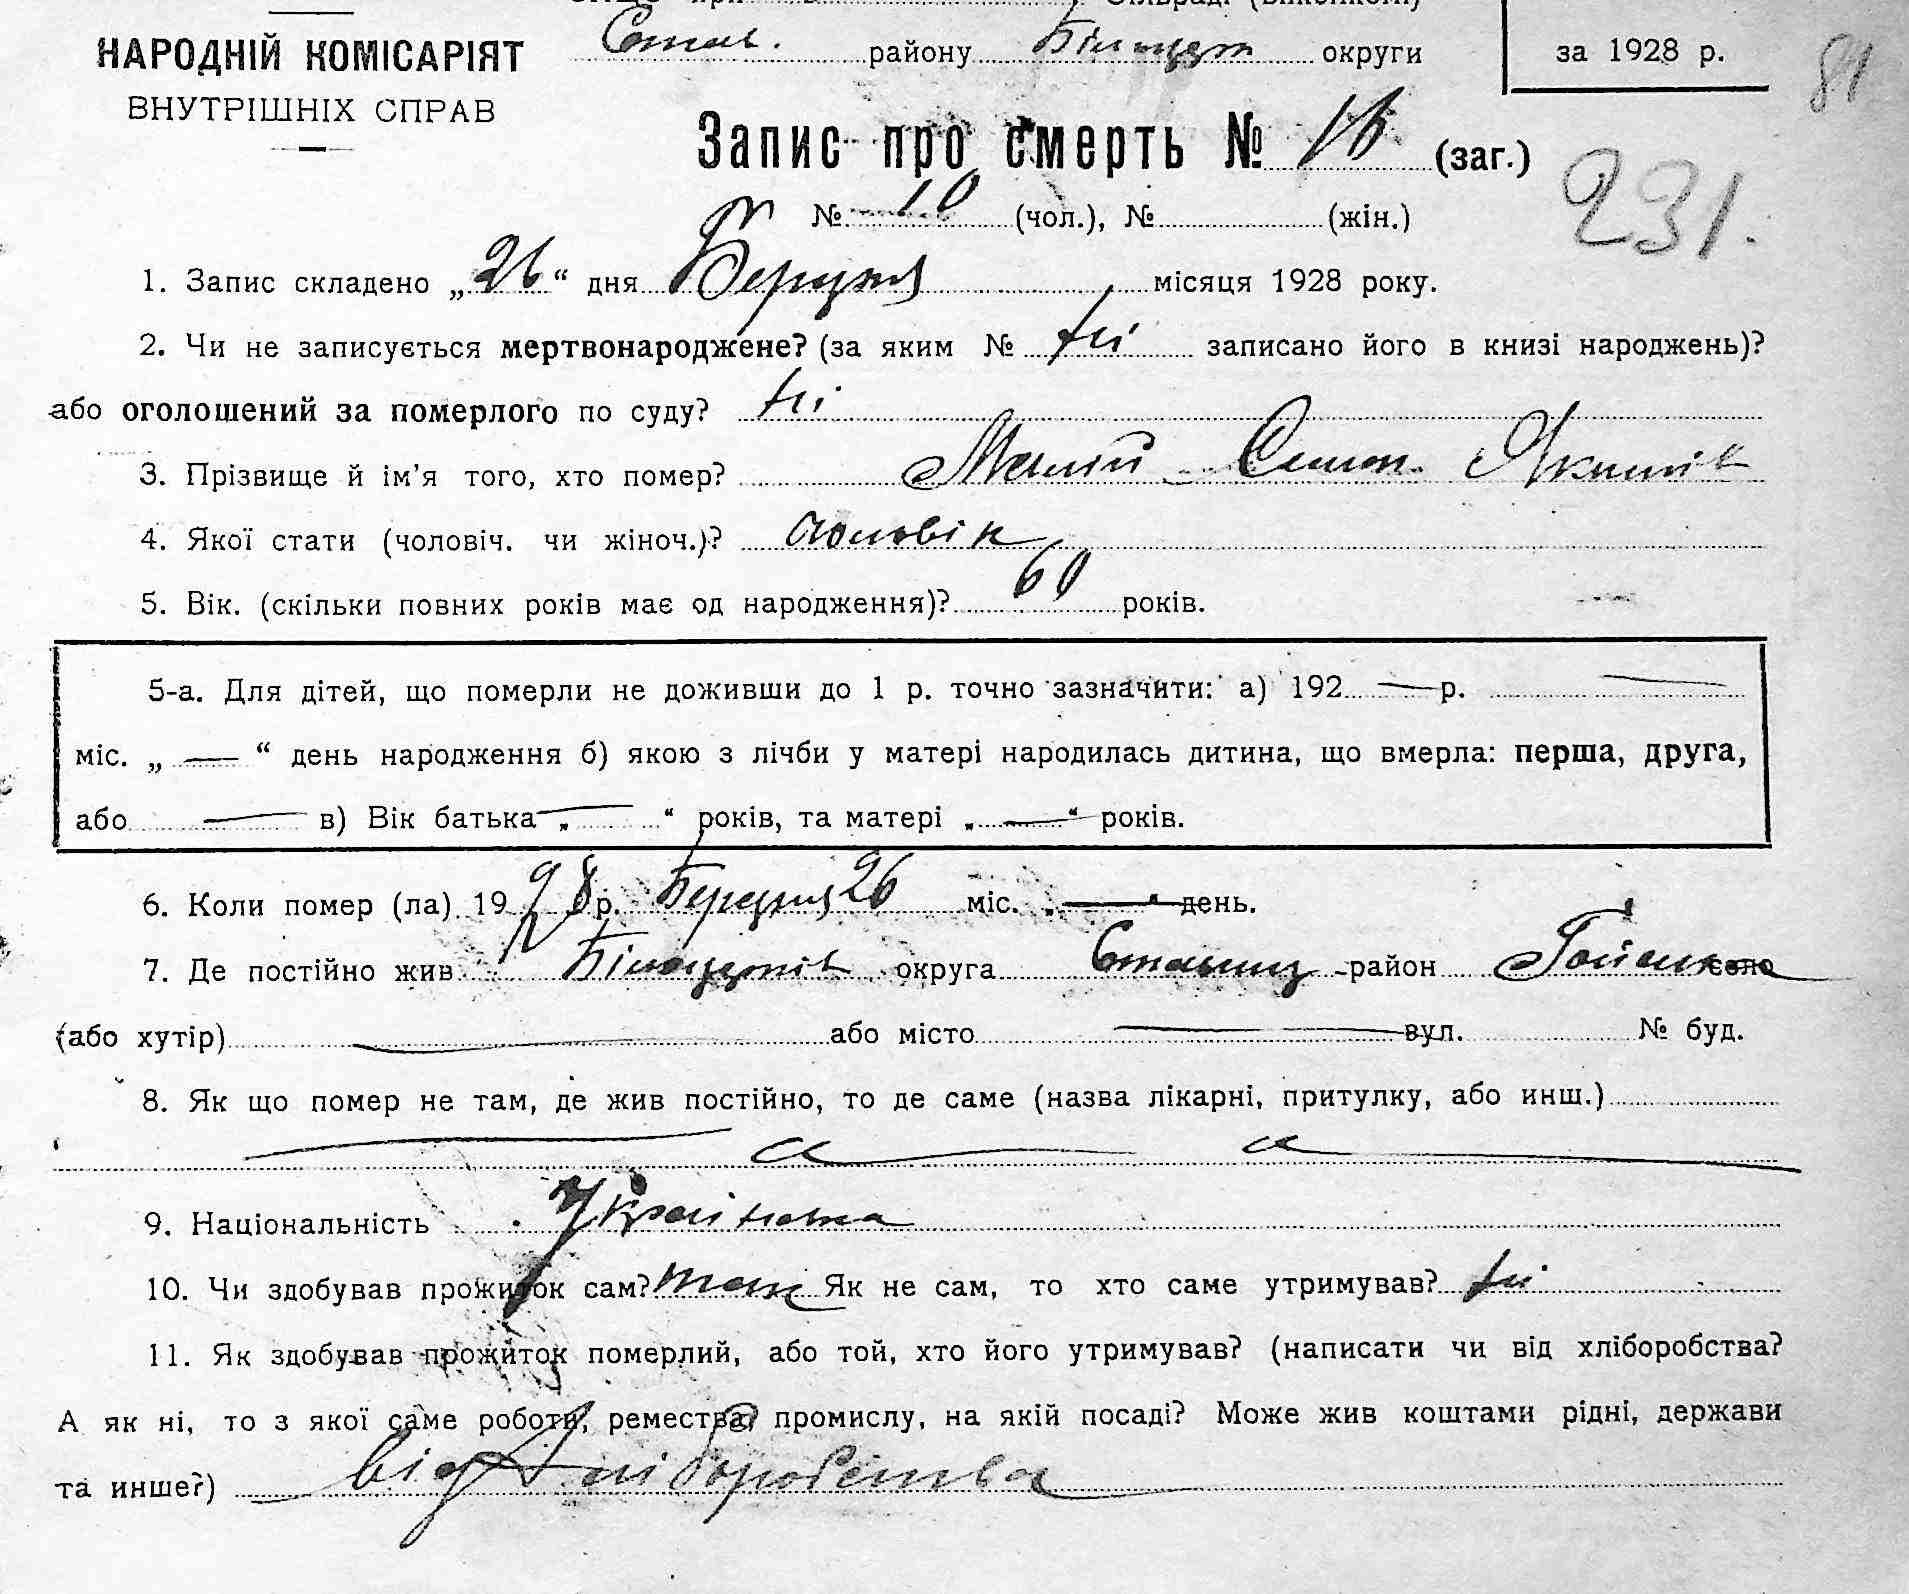 НАРОДНІЙ КОМІСАРІЯТ
ВНУТРІШНІХ СПРАВ
Стан. району Білоцерк округи
за 1928 р.
81
Запис про смерть № 16 (заг.)
231.
№ 10 (чол.), № (жін.)
1. Запис складено „26“ дня Березня місяця 1928 року.
2. Чи не записується мертвонароджене? (за яким № ні записано його в книзі народжень)?
або оголошений за померлого по суду? ні
3. Прізвище й ім'я того, хто помер? Малий Семен Якимів
4. Якої стати (чоловіч. чи жіноч.)? чоловік
5. Вік. (скільки повних років має од народження)? 60 років.
5-а. Для дітей, що померли не доживши до 1 р. точно зазначити: а) 192 — р. —
міс. „ — “ день народження б) якою з лічби у матері народилась дитина, що вмерла: перша, друга,
або — в) Вік батька „ — “ років, та матері „ — “ років.
6. Коли помер (ла) 1928 р. Березня 26 міс. „ — “ день.
7. Де постійно жив Білоцерків округа Ставищ район село
(або хутір) — або місто — вул. № буд.
8. Як що помер не там, де жив постійно, то де саме (назва лікарні, притулку, або инш.)
9. Національність Українська
10. Чи здобував прожиток сам? так Як не сам, то хто саме утримував? ні
11. Як здобував прожиток померлий, або той, хто його утримував? (написати чи від хліборобства?
А як ні, то з якої саме роботи, ремества, промислу, на якій посаді? Може жив коштами рідні, держави
та инше?) від хліборобства